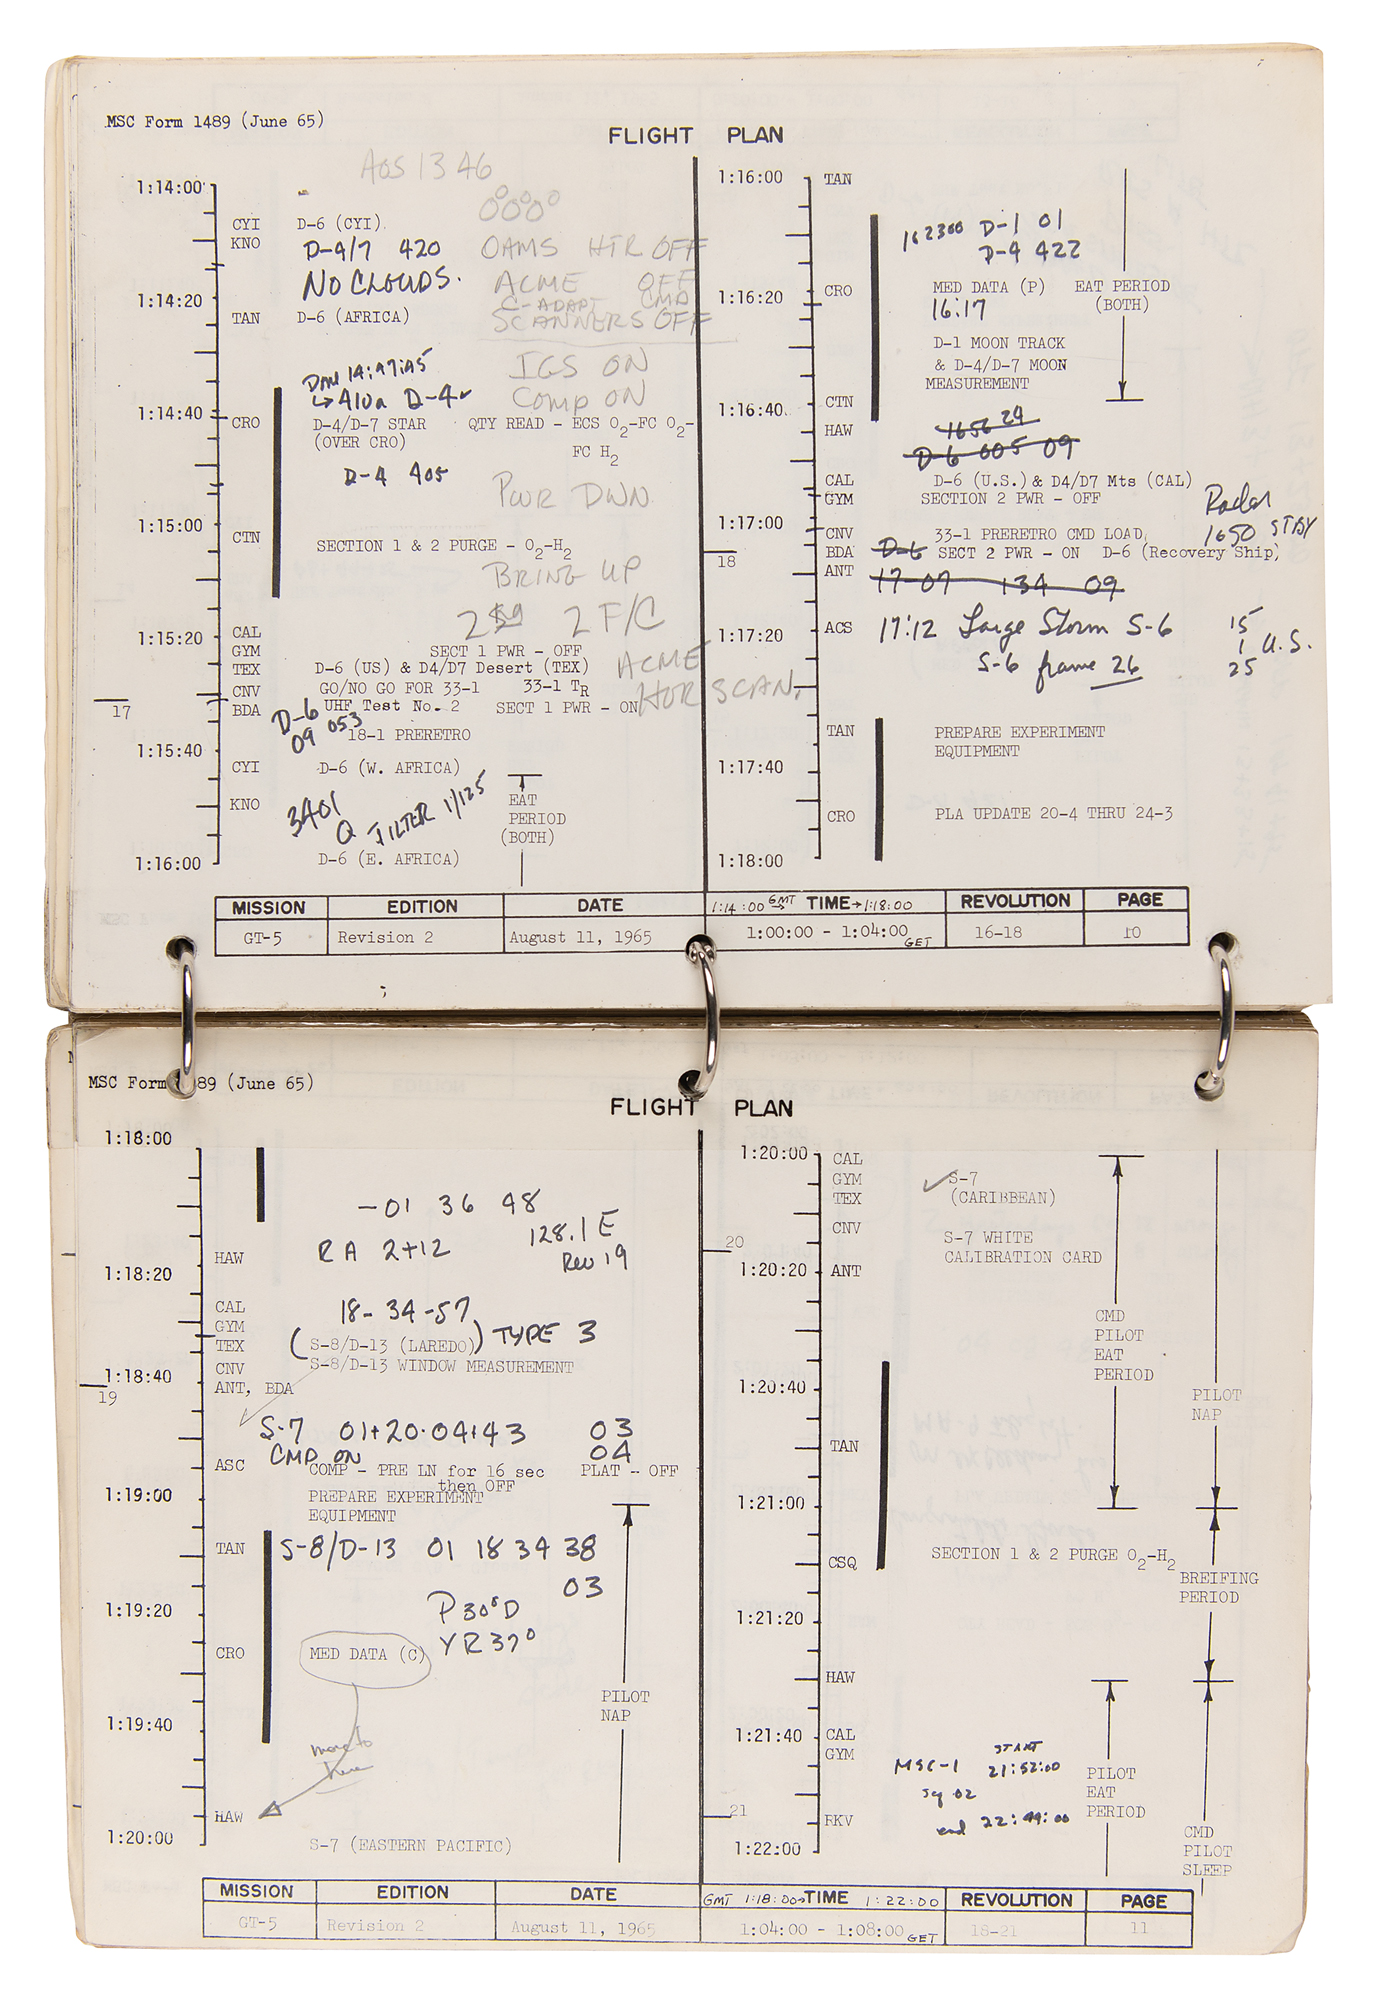 MSC Form 1489 (June 65)
FLIGHT PLAN
AOS 13 46
1:14:00
000
CYI D-6 (CYI)
KNO D-4/7 420 OAMS HTR OFF
NO CLOUDS. ACME OFF
C-ADAPT CMD
1:14:20
TAN D-6 (AFRICA) SCANNERS OFF
IGS ON
14:47:45
410a D-4 Comp ON
1:14:40
CRO D-4/D-7 STAR QTY READ - ECS O2-FC O2-
(OVER CRO) FC H2
D-4 405
PWR DWN
1:15:00
CTN SECTION 1 & 2 PURGE - O2-H2
BRING UP
2 2 F/C
1:15:20
CAL
GYM SECT 1 PWR - OFF
TEX D-6 (US) & D4/D7 Desert (TEX) ACME
CNV GO/NO GO FOR 33-1 33-1 TR HOR SCAN.
17
BDA UHF Test No. 2 SECT 1 PWR - ON
D-6
09 053
18-1 PRERETRO
1:15:40
CYI D-6 (W. AFRICA)
KNO EAT
PERIOD
(BOTH)
3401
Q FILTER 1/125
1:16:00
D-6 (E. AFRICA)
1:16:00 TAN
162300 D-1 01
D-4 422
1:16:20
CRO MED DATA (P) EAT PERIOD
(BOTH)
16:17
D-1 MOON TRACK
& D-4/D-7 MOON
MEASUREMENT
1:16:40
CTN
HAW 1656 24
D-6 005 09
CAL D-6 (U.S.) & D4/D7 Mts (CAL)
GYM SECTION 2 PWR - OFF
Radar
1650 STBY
1:17:00
CNV 33-1 PRERETRO CMD LOAD
18
BDA D-6 SECT 2 PWR - ON D-6 (Recovery Ship)
ANT 17-07 134 09
1:17:20
ACS 17:12 Large Storm S-6
S-6 frame 26
15
1 U.S.
25
TAN PREPARE EXPERIMENT
EQUIPMENT
1:17:40
CRO PLA UPDATE 20-4 THRU 24-3
1:18:00
MISSION EDITION DATE 1:14:00 GMT TIME→1:18:00 REVOLUTION PAGE
GT-5 Revision 2 August 11, 1965 1:00:00 - 1:04:00 GET 16-18 10
MSC Form 489 (June 65)
FLIGHT PLAN
1:18:00
-01 36 48
RA 2+12 128.1 E
Rev 19
HAW
1:18:20
CAL 18-34-57
GYM
TEX (S-8/D-13 (LAREDO)) TYPE 3
CNV S-8/D-13 WINDOW MEASUREMENT
1:18:40
19
ANT, BDA
S-7 01+20:04+43 03
CMD ON 04
ASC COMP - PRE LN for 16 sec PLAT - OFF
then OFF
1:19:00
PREPARE EXPERIMENT
EQUIPMENT
TAN S-8/D-13 01 18 34 38
03
P 30° D
1:19:20
YR 37°
CRO MED DATA (C)
PILOT
NAP
1:19:40
move to
here
HAW
1:20:00
S-7 (EASTERN PACIFIC)
1:20:00 CAL
GYM S-7
TEX (CARIBBEAN)
CNV S-7 WHITE
CALIBRATION CARD
20
1:20:20 ANT
CMD
PILOT
EAT
PERIOD
1:20:40
PILOT
NAP
TAN
1:21:00
CSQ SECTION 1 & 2 PURGE O2-H2
BREIFING
PERIOD
1:21:20
HAW
1:21:40 CAL
GYM
MSC-1 START
21:52:00
sq 02
end 22:49:00
PILOT
EAT
PERIOD
21
RKV
1:22:00
CMD
PILOT
SLEEP
MISSION EDITION DATE GMT 1:18:00→TIME 1:22:00 REVOLUTION PAGE
GT-5 Revision 2 August 11, 1965 1:04:00 - 1:08:00 GET 18-21 11